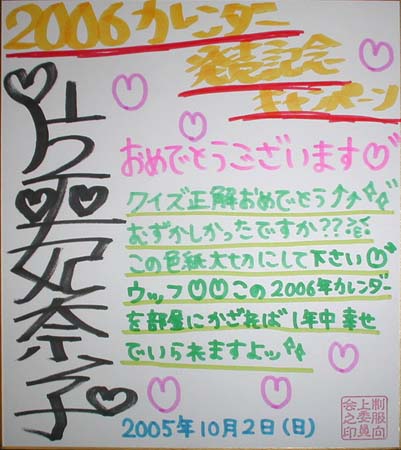 2006カレンダー
発売記念
キャンペーン
亜妃奈子
おめでとうございます♡
クイズ正解おめでとう
むずかしかったですか??
この色紙大切にして下さい♡
ウッフ♡♡この2006年カレンダー
を部屋にかざれば1年中幸せ
でいられますよッ
2005年10月2日(日)
制服向
上委員
会之印